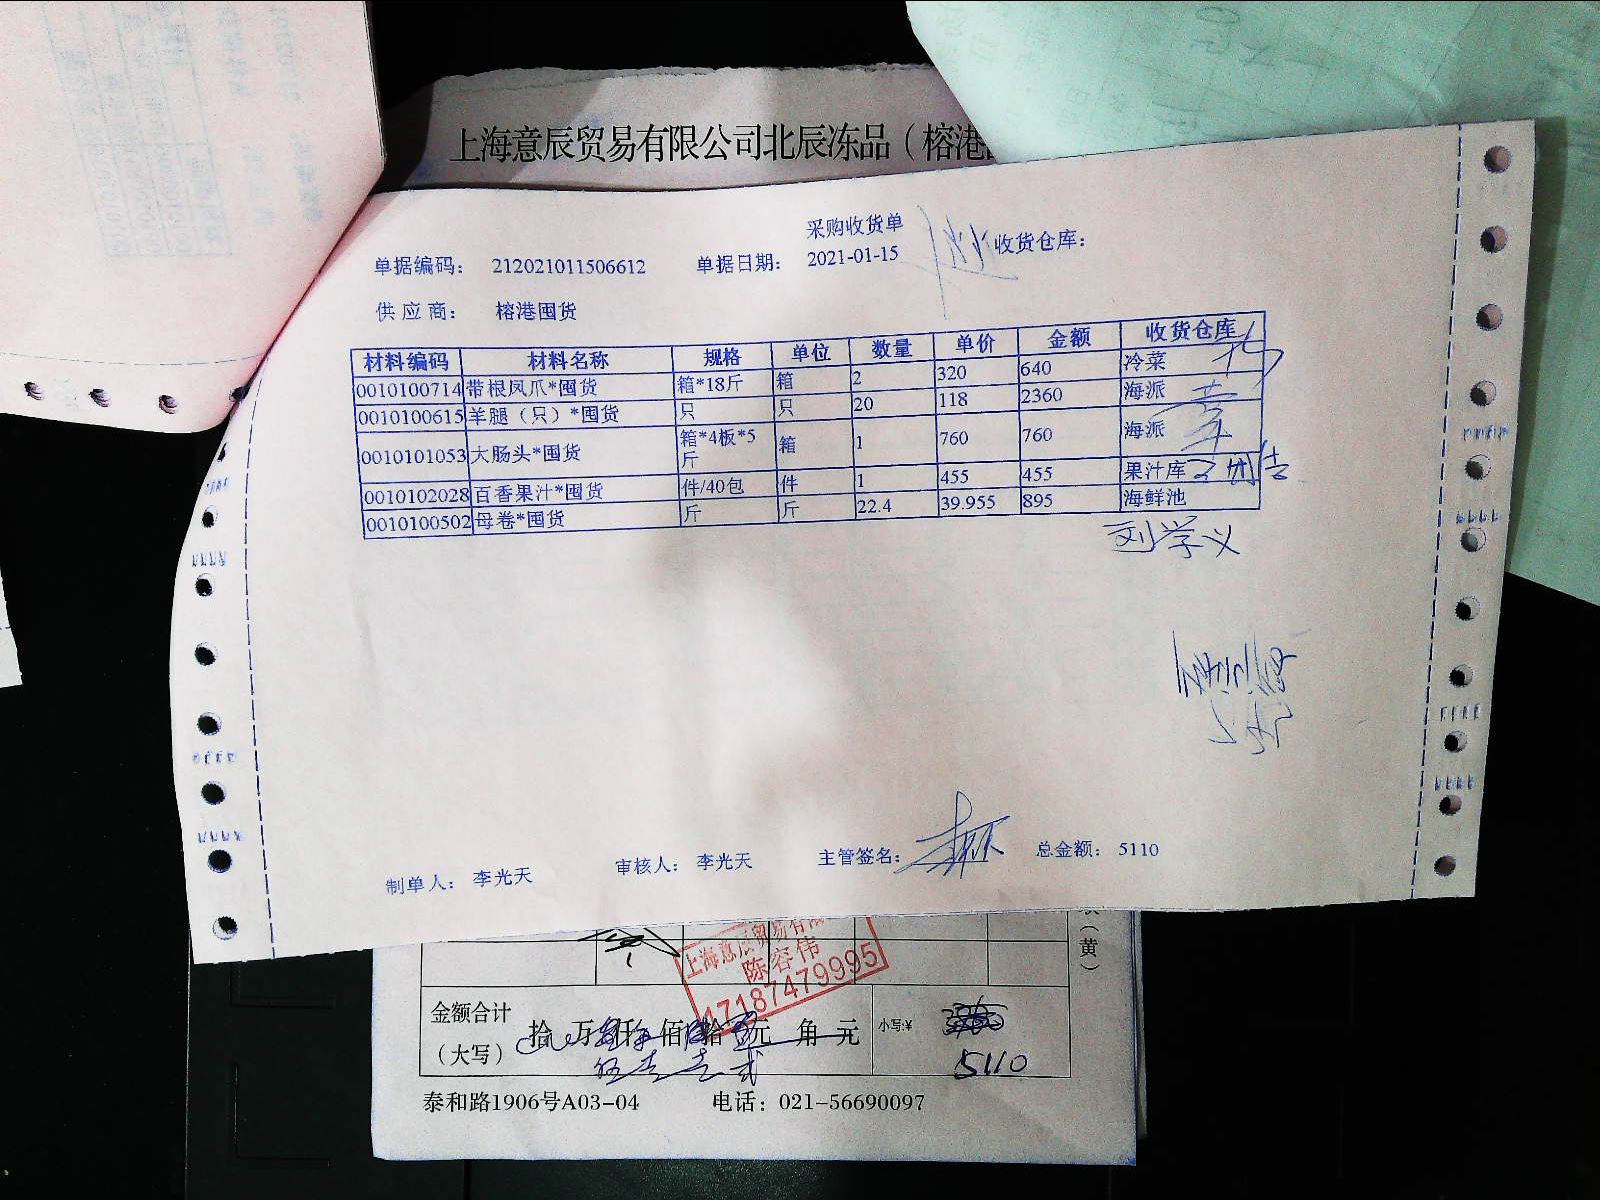 上海意辰贸易有限公司北辰冻品（榕港
采购收货单
单据编码： 212021011506612 单据日期： 2021-01-15 收货仓库：
供应商： 榕港囤货
材料编码 材料名称 规格 单位 数量 单价 金额 收货仓库
0010100714 带根凤爪*囤货 箱*18斤 箱 2 320 640 冷菜
0010100615 羊腿（只）*囤货 只 只 20 118 2360 海派
0010101053 大肠头*囤货 箱*4板*5斤 箱 1 760 760 海派
0010102028 百香果汁*囤货 件/40包 件 1 455 455 果汁库
0010100502 母卷*囤货 斤 斤 22.4 39.955 895 海鲜池
刘学义
制单人： 李光天 审核人： 李光天 主管签名： 总金额： 5110
（黄）
上海意辰贸易有限
陈容伟
17187479995
金额合计（大写） 拾 万 仟 佰 拾 元 角 元 小写:¥
5110
泰和路1906号A03-04 电话：021-56690097